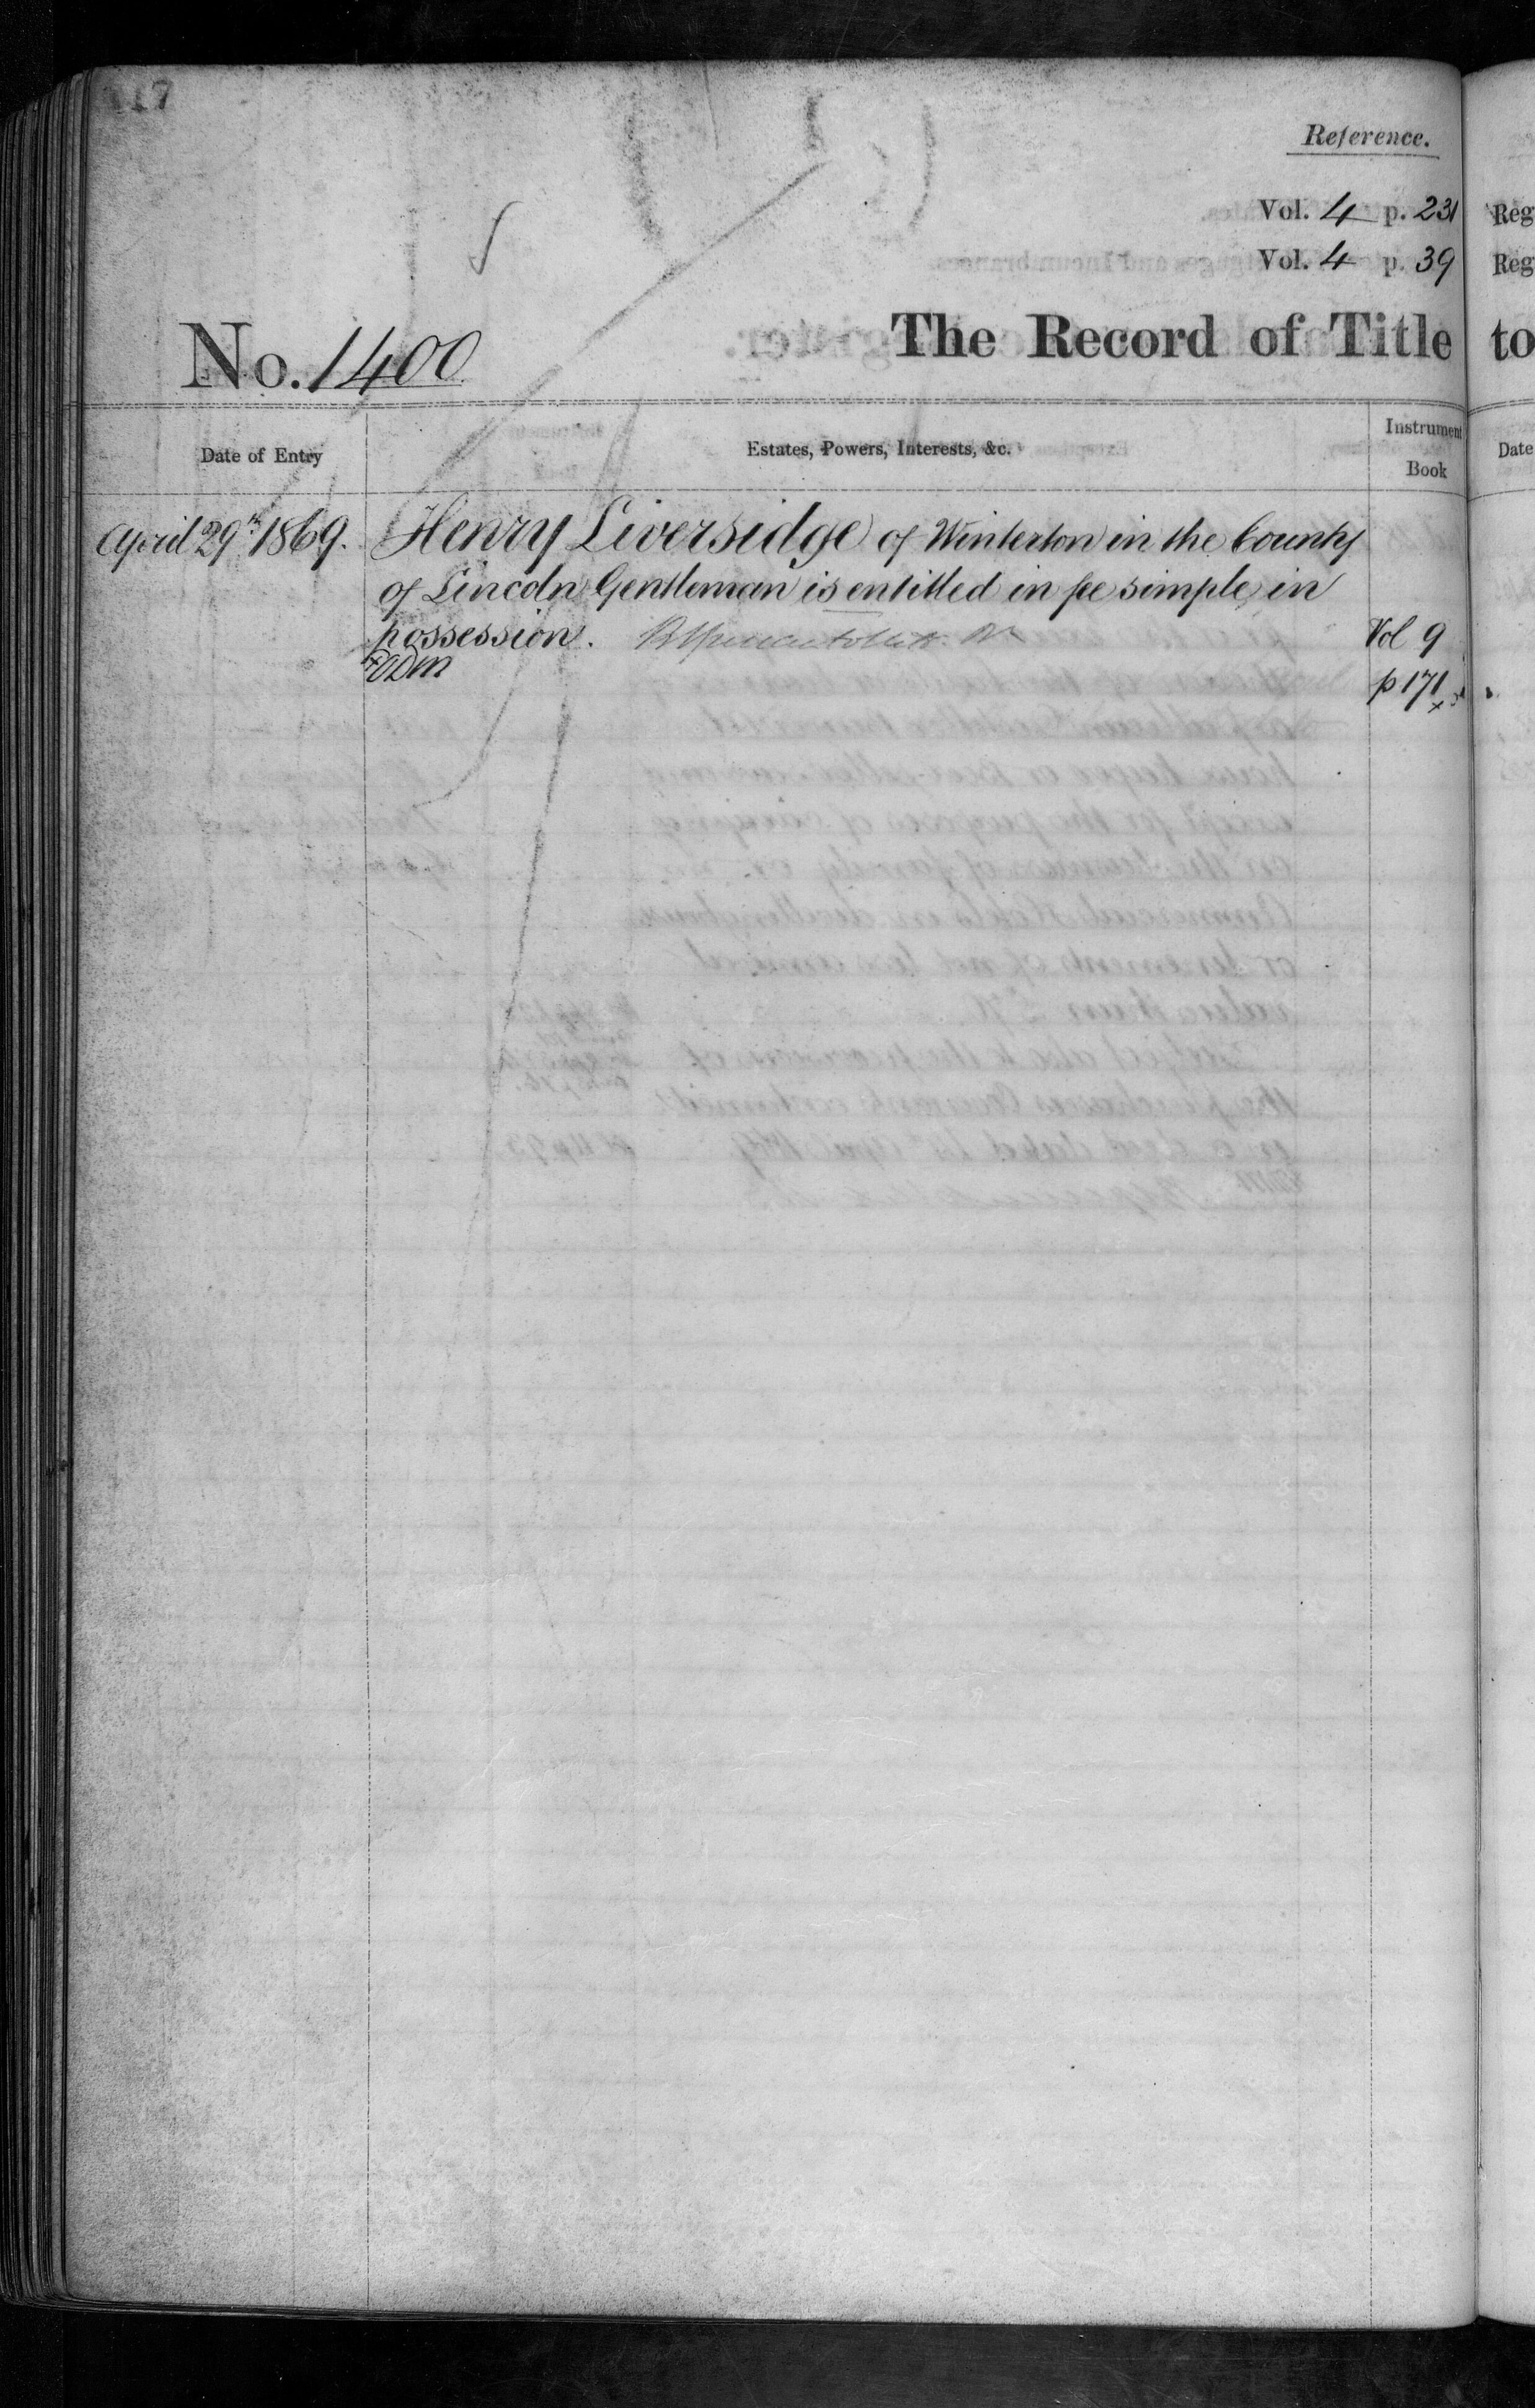 117
Reference.
Vol. 4 p. 231
Vol. 4 p. 39
No. 1400
The Record of Title
Date of Entry
Estates, Powers, Interests, &c.
Instrument
Book
April 29th 1869.
Henry Liversidge of Winterton in the County
of Lincoln Gentleman is entitled in fee simple in
possession.
Vol 9
p 171
Reg
Reg
to
Date